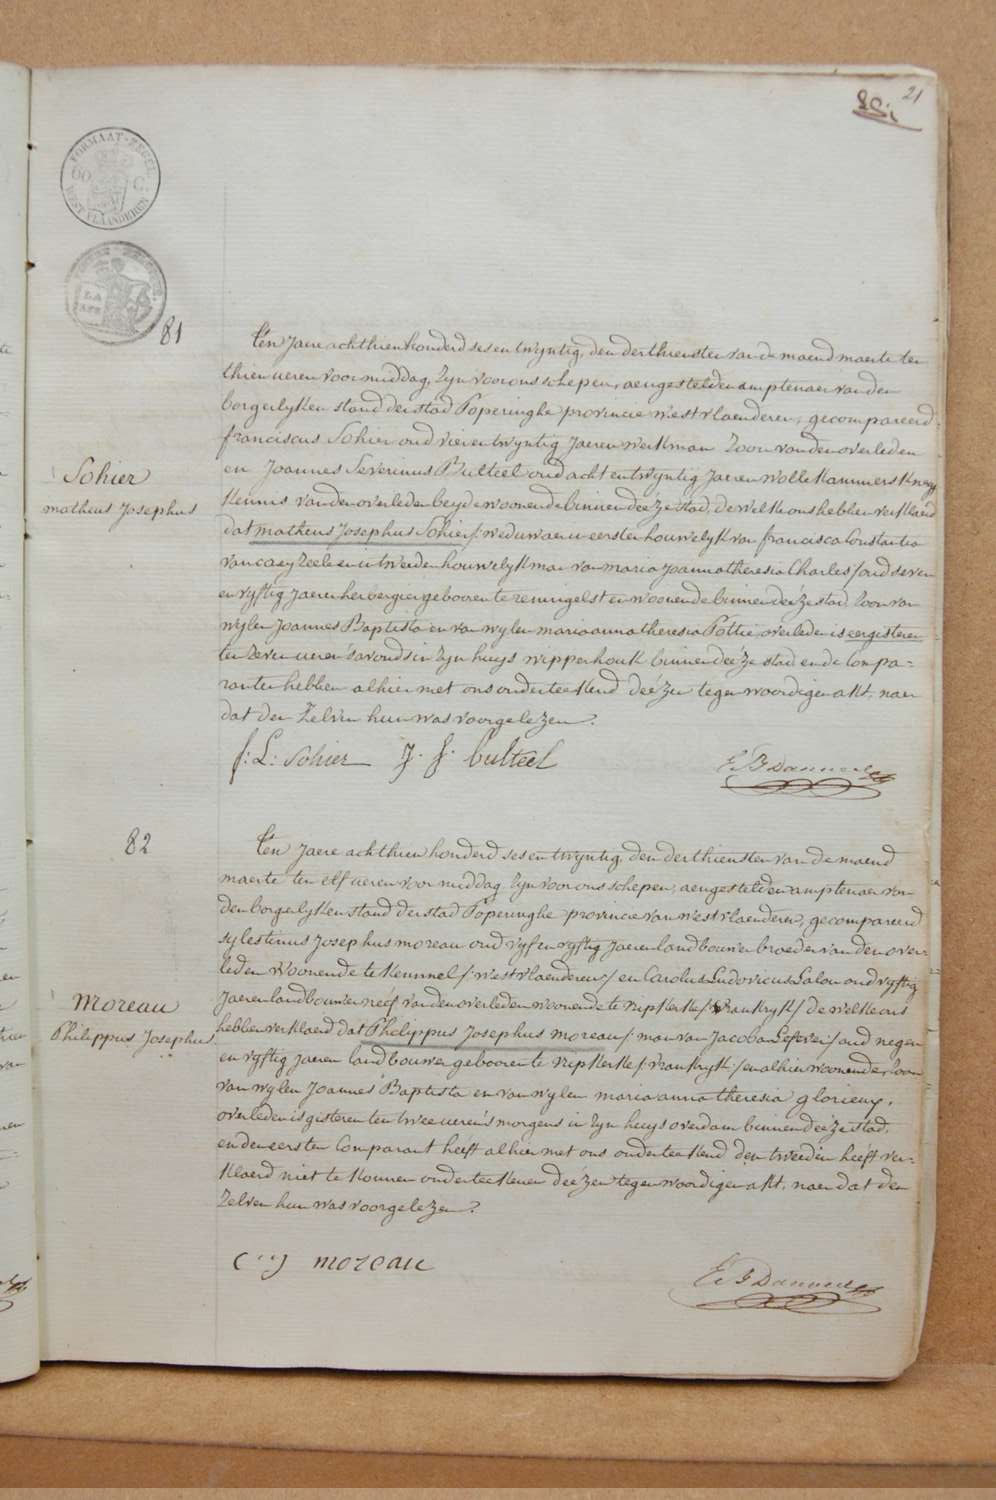 21
FORMAAT-ZEGEL
WEST VLAANDEREN
81
Ten Jaere achthien honderd ses en twyntig, den derthiensten van de maend maerte ten
thien ueren voormiddag, Zyn voor ons schepen, aengestelden amptenaer van den
borgerlyken stand der stad Poperinghe provincie westvlaenderen, gecompareerd
franciscus Sohier oud vier en twyntig Jaeren werkman Zoon van den overleden
en Joannes Severinus Bulteel oud acht en twyntig Jaeren wolle Kammers Knegt
Kennis van den overleden beyde woonende binnen deéze stad, de welke ons hebben verklaerd
Sohier
matheus Josephus
dat matheus Josephus Sohier /: weduwaer in eersten houwelyk van francisca Constantia
van caeyzeele en in tweeden houwelyk man van maria Joanna theresia Charles / oud seven
en vyftig Jaeren herbergier gebooren te reningelst en woonende binnen deéze stad, Zoon van
wylen Joannes Baptista en van wylen maria anna theresia Pottie, overleden is eergisteren
ten Zeven ueren s'avonds in Zyn huys wipperhouk binnen deéze stad en de Compa=
ranten hebben alhier met ons onderteekend deézen tegenwoordigen akt, naer
dat den Zelven hun was voorgelezen.
f: L: Sohier J. f. bulteel
82
Ten Jaere achthien honderd ses en twyntig, den derthiensten van de maend
maerte ten elf ueren voormiddag Zyn voor ons schepen, aengestelden amptenaer van
den borgerlyken stand der stad Poperinghe provincie van westvlaenderen, gecompareerd
sylestinus Josephus moreau oud vyf en vyftig Jaeren landbouwer broeder van den over=
leden Woonende te Kemmel /: westvlaenderen / en Carolus Ludovicus Lalou oud vyftig
Jaeren landbouwer neéf van den overleden woonende te Nipkerke / vrankryk / de welke ons
Moreau
Philippus Josephus
hebben verklaerd dat Philippus Josephus moreau / man van Jacoba Lefever / oud negen
en vyftig Jaeren landbouwer gebooren te Nipkerke / vrankryk / en alhier woonende, Zoon
van wylen Joannes Baptista en van wylen maria anna theresia glorieux,
overleden is gisteren ten twee ueren s morgens in Zyn huys overdam binnen deéze stad,
en den eersten Comparant heéft alhier met ons onderteekend den tweeden heéft ver=
klaerd niet te Konnen onderteekenen deézen tegenwoordigen akt, naer dat den
Zelven hun was voorgelezen.
moreau